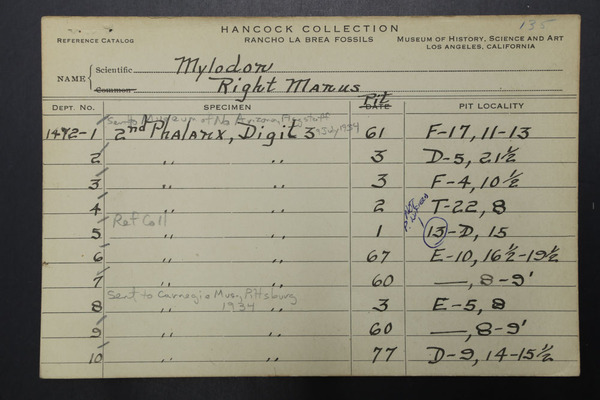 135
HANCOCK COLLECTION
REFERENCE CATALOG RANCHO LA BREA FOSSILS MUSEUM OF HISTORY, SCIENCE AND ART
LOS ANGELES, CALIFORNIA
NAME { Scientific Mylodon
Common Right Manus
Pit
DEPT. NO. SPECIMEN DATE PIT LOCALITY
Sent to Museum of No Arizona, Flagstaff
9 July 1934
1492-1 2nd Phalanx, Digit 3 61 F-17, 11-13
2 " " 3 D-5, 21½
3 " " 3 F-4, 10½
4 " " 2 T-22, 8
Ref Coll
5 " " 1 13-D, 15
6 " " 67 E-10, 16½-19½
7 " " 60 —, 8-9'
Sent to Carnegie Mus, Pittsburg
1934
8 " " 3 E-5, 8
9 " " 60 —, 8-9'
10 " " 77 D-9, 14-15½